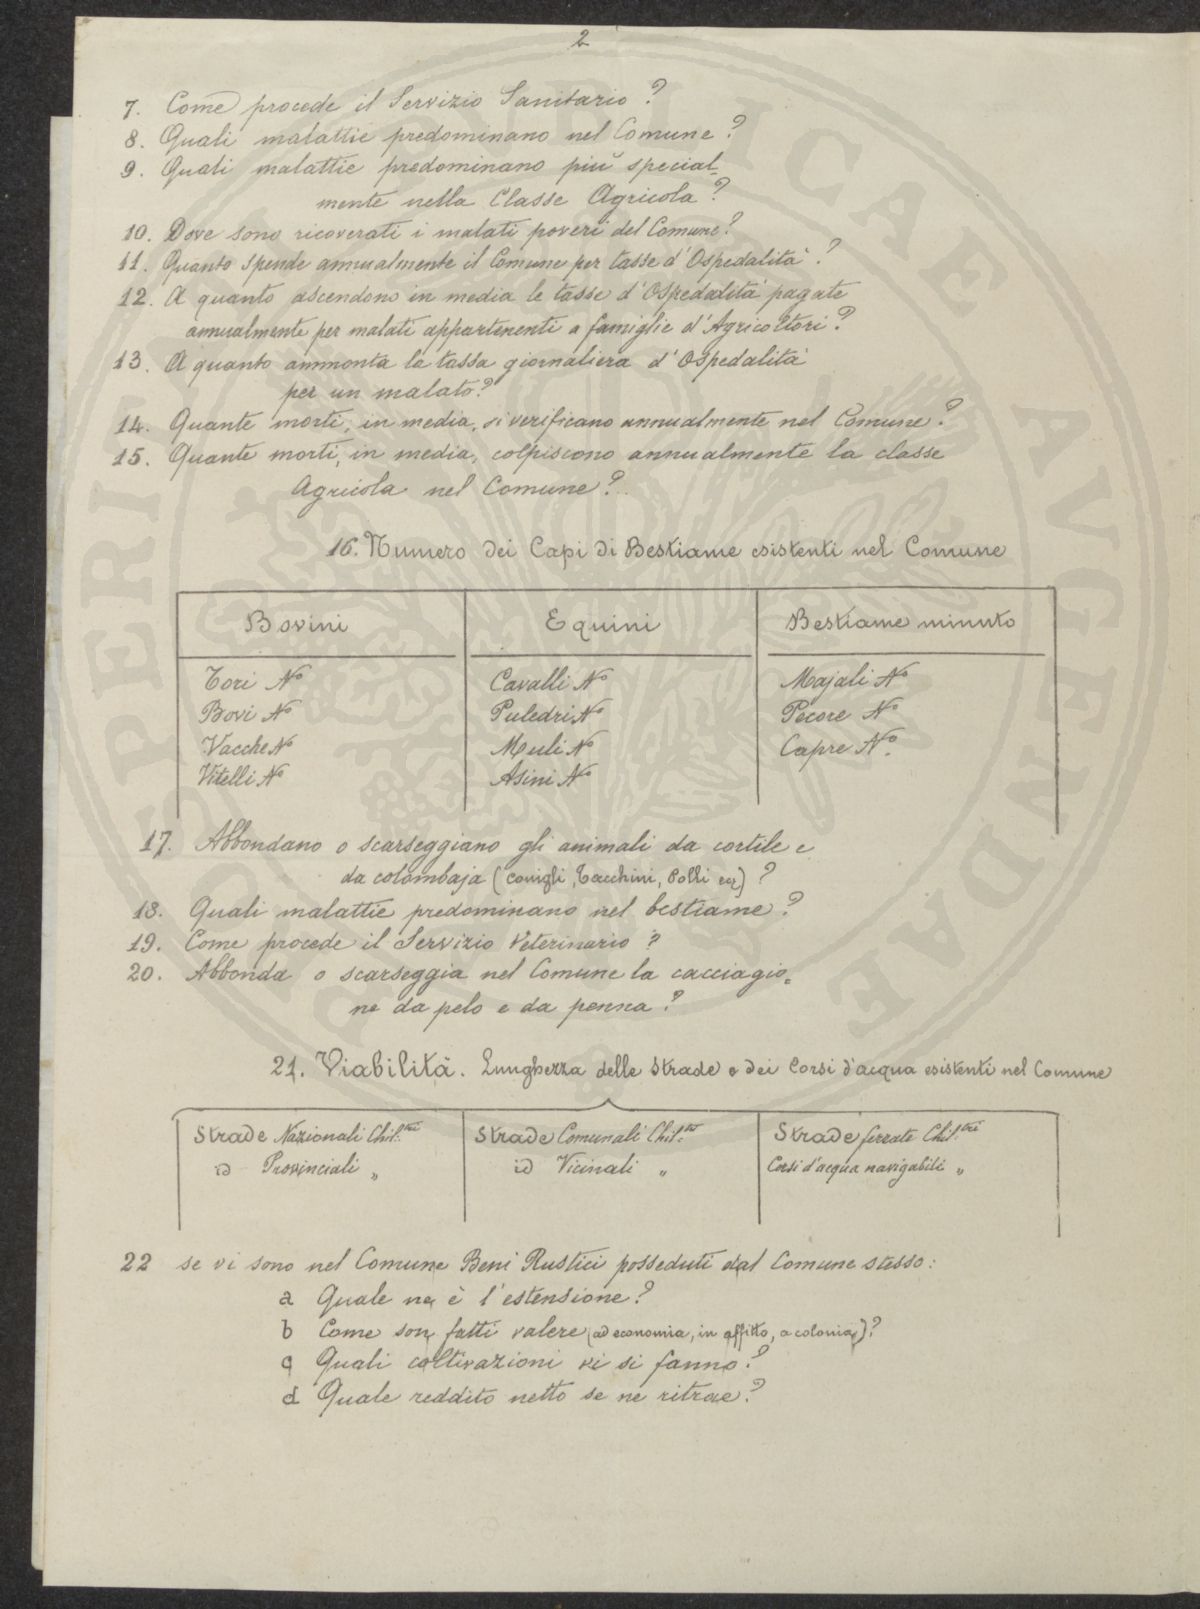 2
7. Come procede il Servizio Sanitario?
8. Quali malattie predominano nel Comune?
9. Quali malattie predominano più special-
mente nella Classe Agricola?
10. Dove sono ricoverati i malati poveri del Comune?
11. Quanto spende annualmente il Comune per tasse d'Ospedalità?
12. A quanto ascendono in media le tasse d'Ospedalità pagate
annualmente per malati appartenenti a famiglie d'Agricoltori?
13. A quanto ammonta la tassa giornaliera d'Ospedalità
per un malato?
14. Quante morti, in media, si verificano annualmente nel Comune?
15. Quante morti, in media, colpiscono annualmente la classe
Agricola nel Comune?
16. Numero dei Capi di Bestiame esistenti nel Comune
Bovini Equini Bestiame minuto
Tori No Cavalli No Majali No
Bovi No Puledri No Pecore No
Vacche No Muli No Capre No.
Vitelli No Asini No
17. Abbondano o scarseggiano gli animali da cortile e
da colombaja (conigli, Tacchini, Polli ecc)?
18. Quali malattie predominano nel bestiame?
19. Come procede il Servizio Veterinario?
20. Abbonda o scarseggia nel Comune la cacciagio=
ne da pelo e da penna?
21. Viabilità. Lunghezza delle Strade e dei Corsi d'acqua esistenti nel Comune
Strade Nazionali Chil:tri Strade Comunali Chil:tri Strade ferrate Chil:tri
id Provinciali „ id Vicinali „ Corsi d'acqua navigabili „
22 se vi sono nel Comune Beni Rustici posseduti dal Comune stesso:
a Quale ne è l'estensione?
b Come son fatti valere (ad economia, in affitto, a colonia)?
c Quali coltivazioni vi si fanno?
d Quale reddito netto se ne ritrae?
PUBLICAE AUGENDAE PROSPERITATI